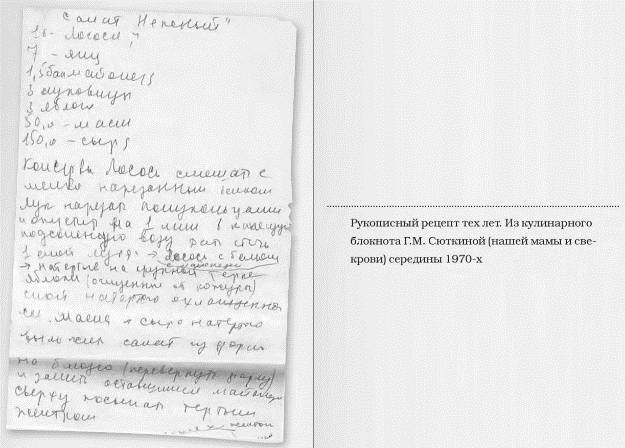 Салат Нежный"
1б - Лосось
7 - яиц
1,5 бан майонеза
3 луковицы
3 яблока
50,0 - масл
150,0 - сыра
Консервы Лосось смешать с
мелко нарезанным белком
Лук нарезать полукольцами
и опустить на 1 мин в кипящую
подсоленную воду
1 слой лука → Лосось с белком
→ натертые на крупной терке
яблоки (очищенные от кожуры)
слой натертого охлажденного
сл. масла и сыра натертого
выложить салат из формы
на блюдо (перевернуть форму)
и залить оставшимся майонезом
сверху посыпать тертым
желтком
Рукописный рецепт тех лет. Из кулинарного
блокнота Г.М. Сюткиной (нашей мамы и све-
крови) середины 1970-х